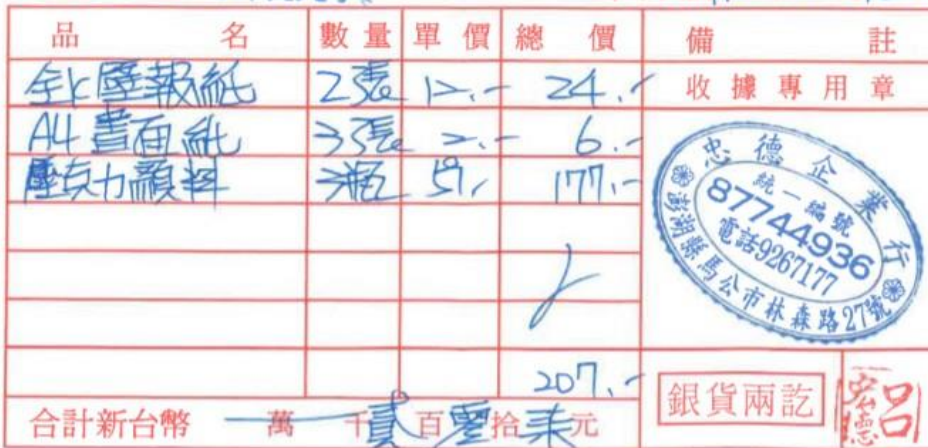 品 名 數量 單價 總價 備註
全K壁報紙 2張 12.- 24.- 收據專用章
A4畫西紙 3張 2.- 6.-
壓克力顏料 3瓶 59.- 177.-
忠德企業行
統一編號
87744936
電話9267177
澎湖縣馬公市林森路27號
207.-
合計新台幣 萬 千 貳 百 零 拾 柒 元 銀貨兩訖 呂宏德